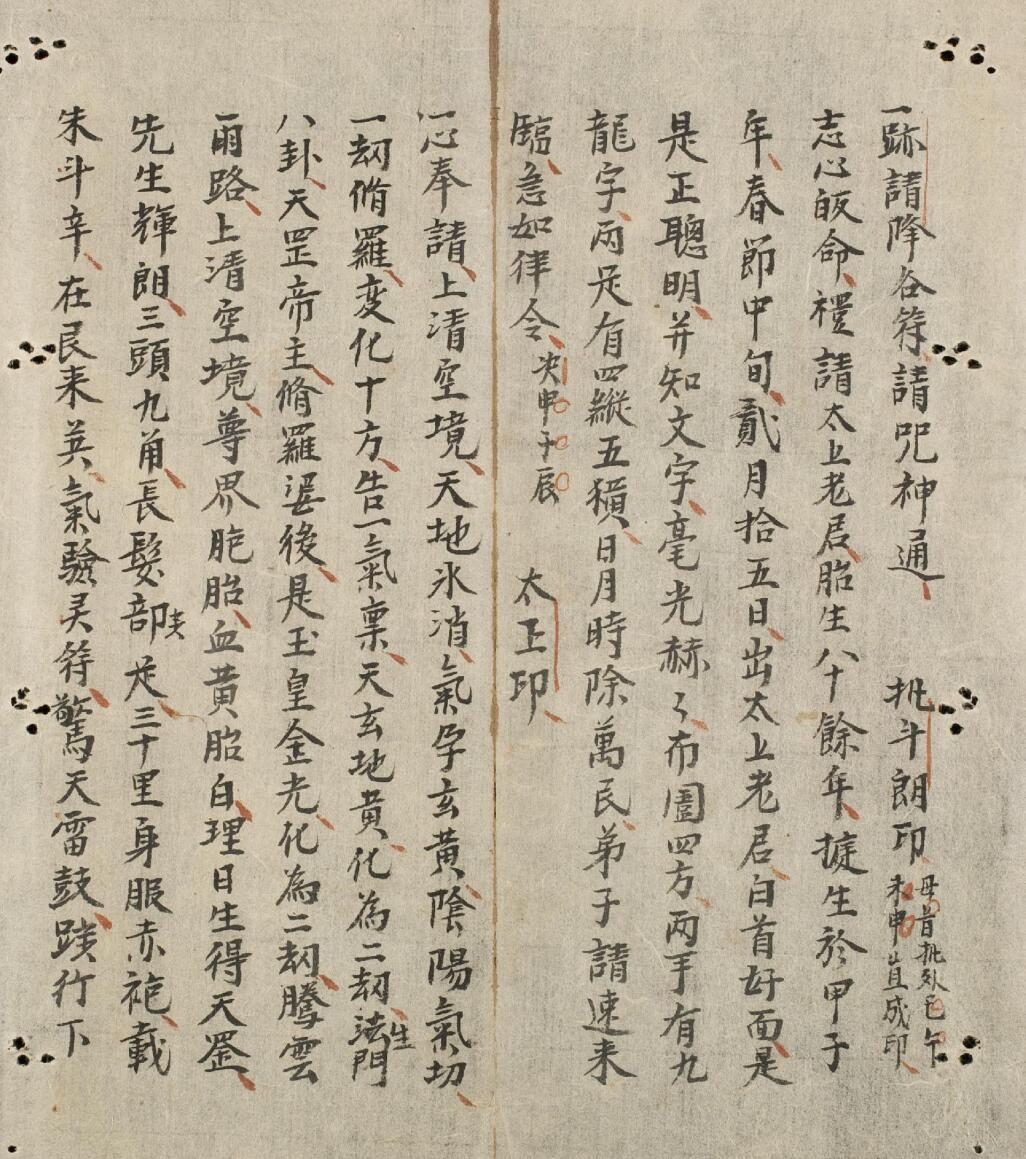 一跡請降各符請咒神通 批斗朗印 毋昔批外巳午
未申直成印
志心皈命禮請太上老君胎生八十餘年㨂生於甲子
年春節中旬貳月拾五日出太上老君白首好面是
是正聰明并知文字毫光赫々布圍四方兩手有九
龍字兩足有四縱五橫日月時除萬民弟子請速来
臨急如律令 次申子辰 太上印
一心奉請上清空境天地氷消氣孕玄黄陰陽氣切
一刼脩羅変化十方告一氣稟天玄地黄化為二刼法門生
八卦天罡帝主脩羅婆後是玉皇金光化為二刼騰雲
雨路上清空境尊界胞胎血黄胎白理日生得天罡
先生輝朗三頭九角長髮部 足三十里身服赤袍載
朱斗辛在艮来英氣驗灵符驚天雷鼓踐行下